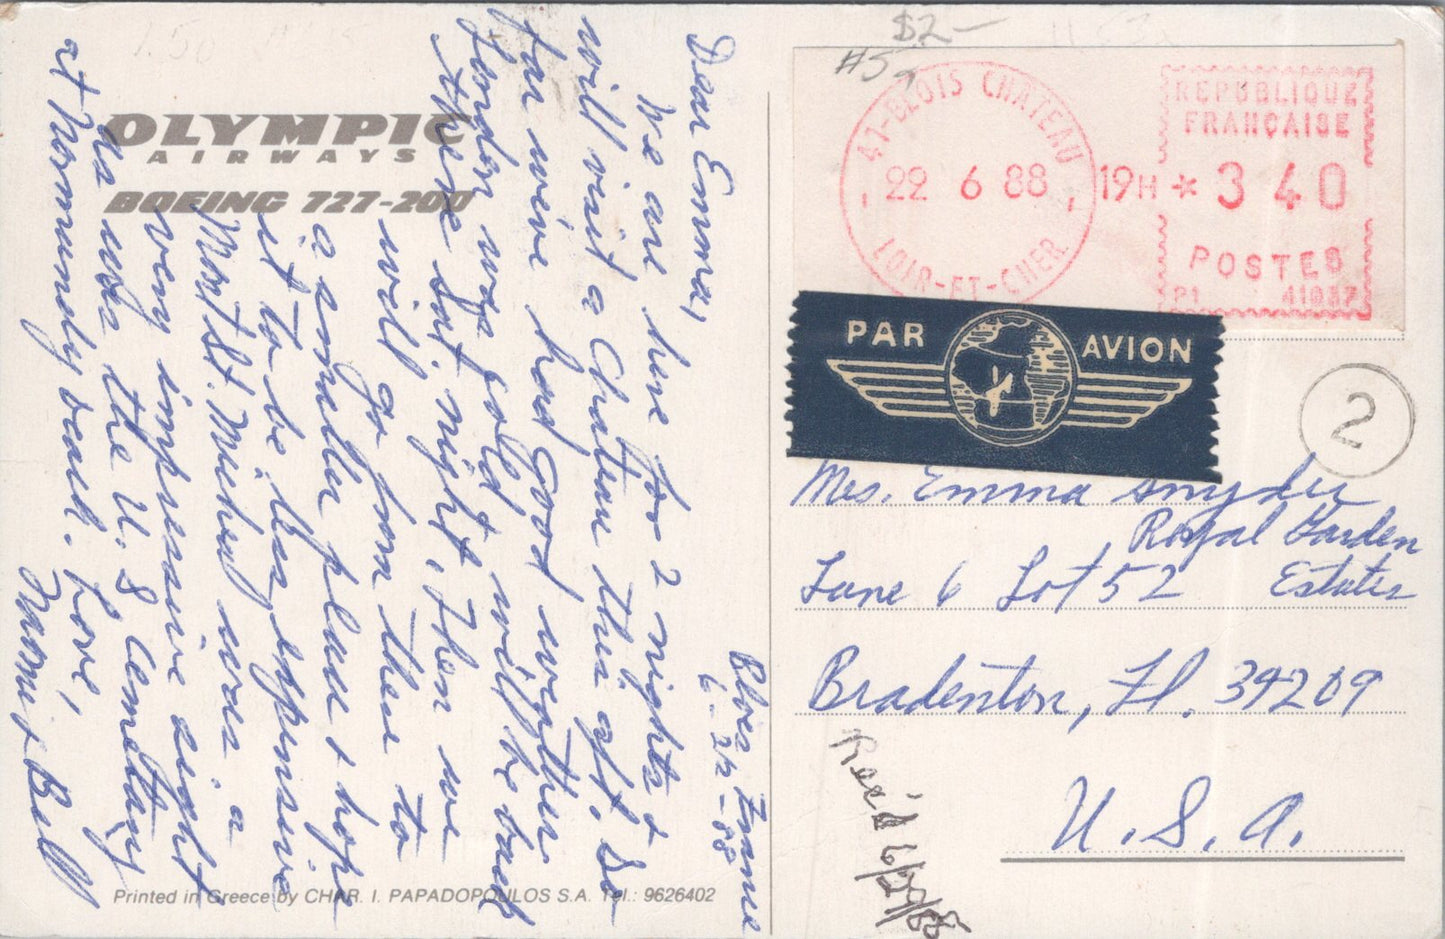 Blois France
6-22-88
Dear Emma,
We are here for 2 nights &
will visit a Chateau this aft. So
far we've had good weather.
London was cold & will be back
there Sat. night. Then we
will go from there to
a smaller place & hope
it to be less expensive
Mont St. Michael was a
very impressive sight
as was the U.S Cemetary
at Normandy beach. Love,
& Bill
OLYMPIC
AIRWAYS
BOEING 727-200
Printed in Greece by CHAR. I. PAPADOPOULOS S.A. Tel.: 9626402
$2-
#5
41-BLOIS CHATEAU
22 6 88
LOIR-ET-CHER
19H * 3 40
REPUBLIQUE
FRANÇAISE
POSTES
P1 41037
PAR AVION
2
Mrs. Emma Snyder
Royal Garden
Lane 6 Lot 52 Estates
Bradenton, Fl. 34209
U.S.A.
Rec'd 6/29/88